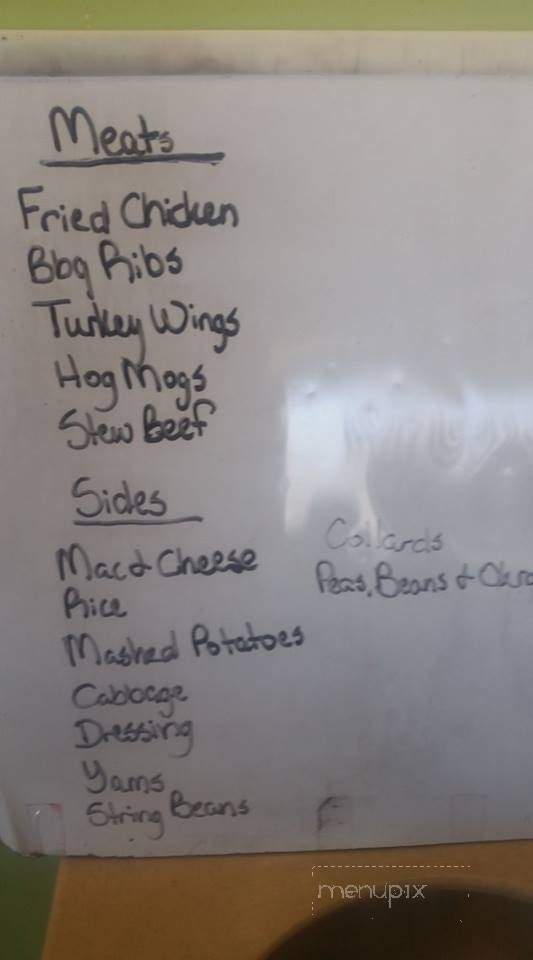 Meats
Fried Chicken
Bbq Ribs
Turkey Wings
Hog Mogs
Stew Beef
Sides
Mac & Cheese
Rice
Mashed Potatoes
Cabbage
Dressing
Yams
String Beans
Collards
Peas, Beans & Okra
menupix